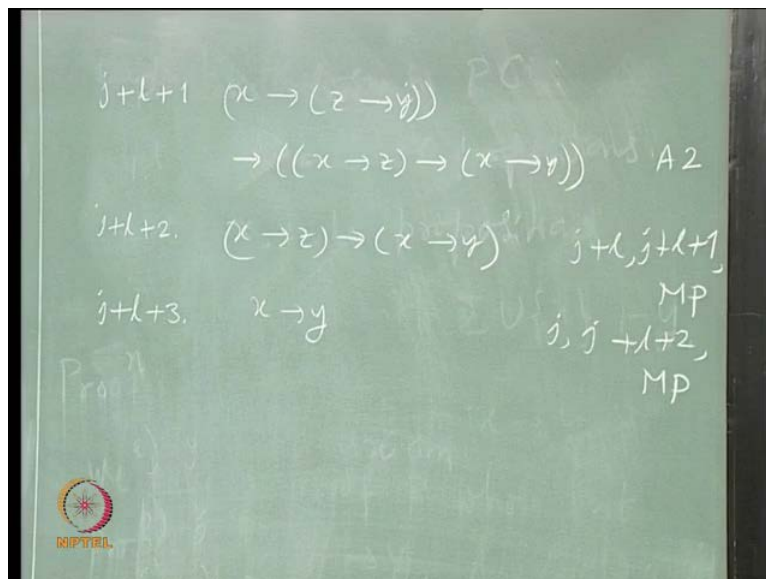 j+l+1 (x → (z → y))
→ ((x → z) → (x → y)) A2
j+l+2. (x → z) → (x → y) j+l, j+l+1,
MP
j+l+3. x → y j, j+l+2,
MP
NPTEL